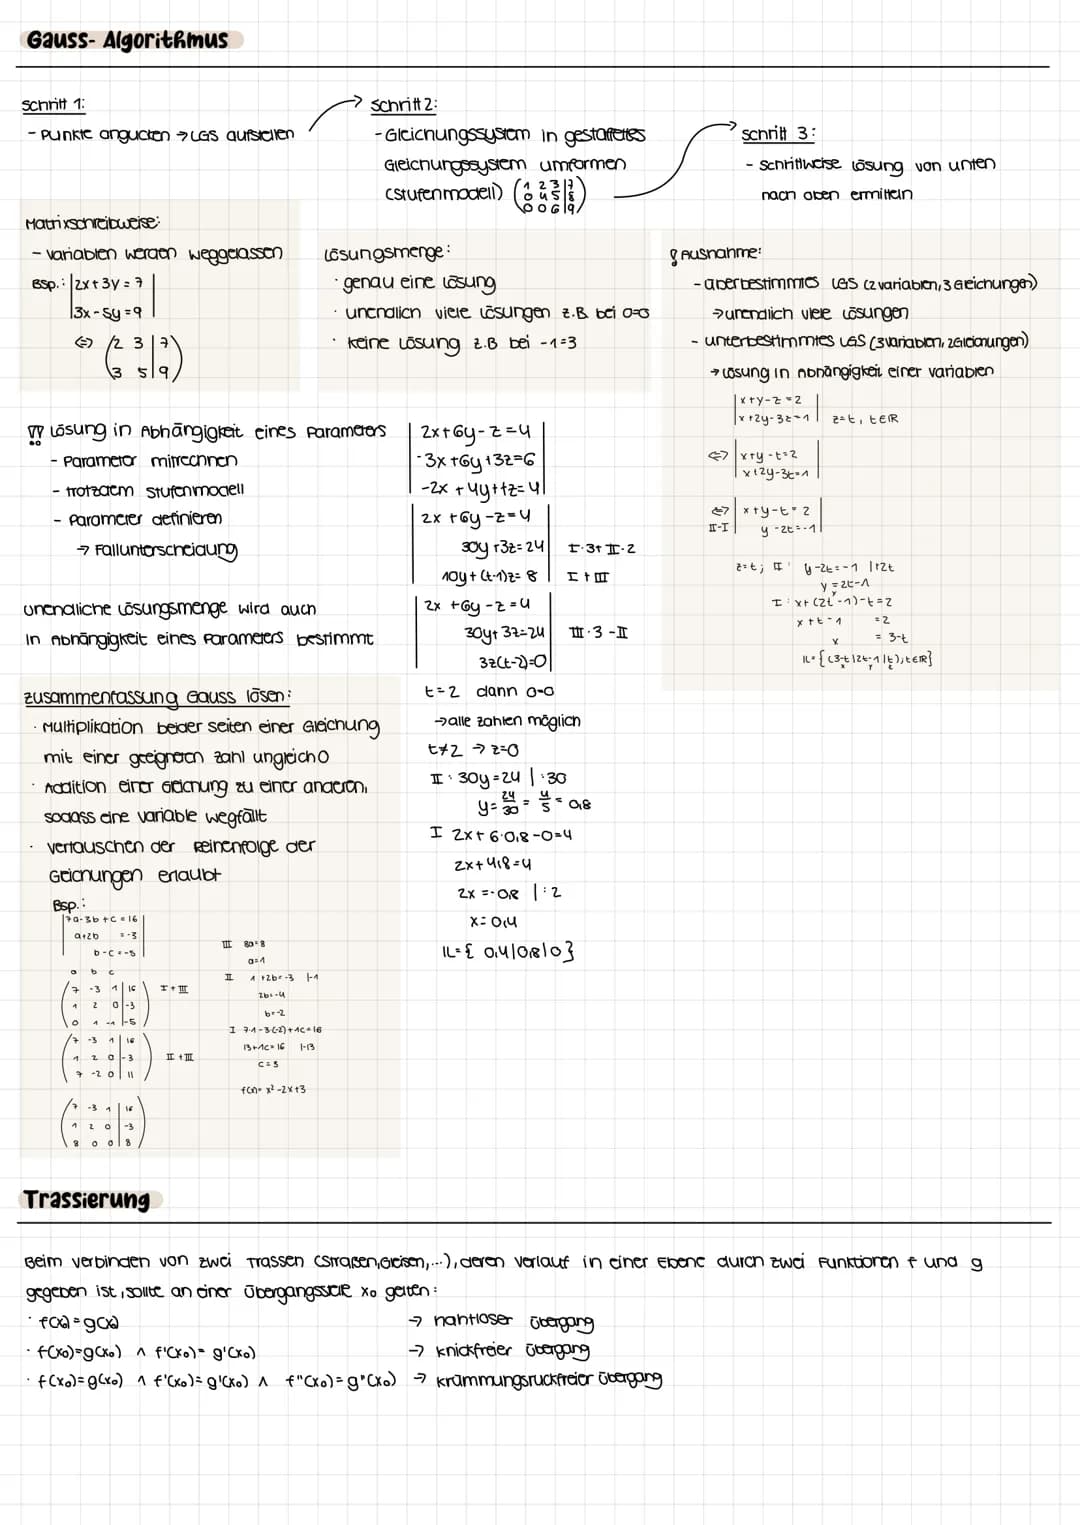 Gauss- Algorithmus
Schritt 1:
- Punkte angucken → LGS aufstellen
Schritt 2:
- Gleichungssystem in gestaffeltes
Gleichungssystem umformen
(Stufenmodell) (1 2 3 | 7
0 4 5 | 8
0 0 6 | 9)
Schritt 3:
- Schrittweise Lösung von unten
nach oben ermitteln
Matrixschreibweise:
- Variablen werden weggelassen
Bsp.: |2x+3y=7|
|3x-5y=9|
⇔ (2 3 | 7
3 5 | 9)
Lösungsmenge:
· genau eine Lösung
· unendlich viele Lösungen z.B bei 0=0
· keine Lösung z.B bei -1=3
Ausnahme:
- überbestimmtes LGS (2 Variablen, 3 Gleichungen)
→ unendlich viele Lösungen
- unterbestimmtes LGS (3 Variablen, 2 Gleichungen)
→ Lösung in Abhängigkeit einer Variablen
|x+y-z=2|
|x+2y-3z=1| z=t, t∈ℝ
⇔ |x+y-t=2|
|x+2y-3t=1|
⇔ |x+y-t=2|
II-I | y-2t=-1|
z=t; II: y-2t=-1 |+2t
y=2t-1
I: x+(2t-1)-t=2
x+t-1 =2
x = 3-t
𝕃={(3-t|2t-1|t), t∈ℝ}
x y z
!! Lösung in Abhängigkeit eines Parameters
- Parameter mitrechnen
- trotzdem Stufenmodell
- Parameter definieren
→ Fallunterscheidung
unendliche Lösungsmenge wird auch
in Abhängigkeit eines Parameters bestimmt
|2x+6y-z=4|
|-3x+6y+3z=6|
|-2x+4y+tz=4|
|2x+6y-z=4|
|30y+3z=24| I·3+II·2
|10y+(t-1)z=8| I+III
|2x+6y-z=4|
|30y+3z=24| III·3-II
|3z(t-2)=0|
t=2 dann 0=0
→ alle Zahlen möglich
t≠2 → z=0
II: 30y=24 |:30
y=24/30=4/5=0,8
I 2x+6·0,8-0=4
2x+4,8=4
2x=-0,8 |:2
x=0,4
𝕃={0,4|0,8|0}
Zusammenfassung Gauss lösen:
· Multiplikation beider Seiten einer Gleichung
mit einer geeigneten Zahl ungleich 0
· Addition einer Gleichung zu einer anderen,
sodass eine Variable wegfällt
· Vertauschen der Reihenfolge der
Gleichungen erlaubt
Bsp.:
|7a-3b+c=16|
|a+2b =-3|
|b-c=-5|
a b c
(7 -3 1 | 16
1 2 0 | -3
0 1 -1 | -5) I+III
(7 -3 1 | 16
1 2 0 | -3
7 -2 0 | 11) II+III
(7 -3 1 | 16
1 2 0 | -3
8 0 0 | 8)
III 8a=8
a=1
II 1+2b=-3 |-1
2b=-4
b=-2
I 7·1-3(-2)+1c=16
13+1c=16 |-13
c=3
f(x)=x²-2x+3
Trassierung
Beim verbinden von zwei Trassen (Straßen, Gleisen,...), deren Verlauf in einer Ebene durch zwei Funktionen f und g
gegeben ist, sollte an einer Übergangsstelle x₀ gelten:
· f(x₀)=g(x₀) → nahtloser Übergang
· f(x₀)=g(x₀) ∧ f'(x₀)=g'(x₀) → knickfreier Übergang
· f(x₀)=g(x₀) ∧ f'(x₀)=g'(x₀) ∧ f"(x₀)=g"(x₀) → krümmungsruckfreier Übergang